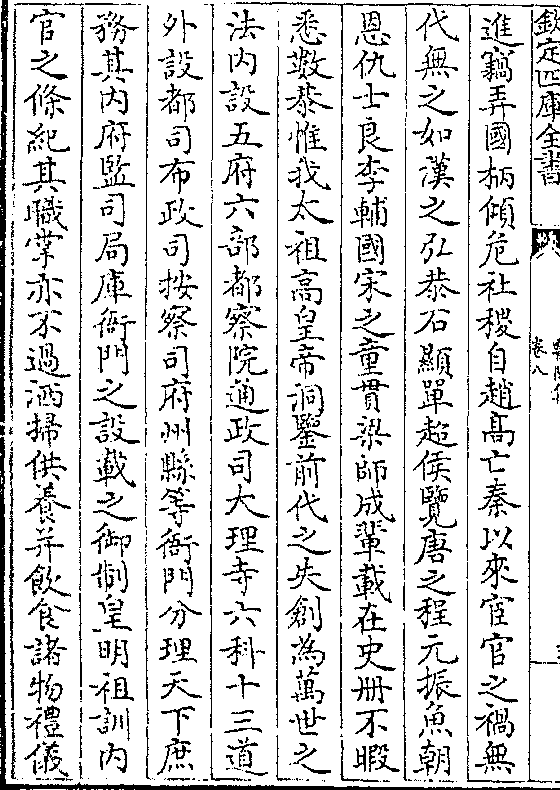 欽定四庫全書
卷八
進竊弄國柄傾危社稷自趙高亡秦以來宦官之禍無
代無之如漢之弘恭石顯單超侯覽唐之程元振魚朝
恩仇士良李輔國宋之童貫梁師成輩載在史冊不暇
悉數恭惟我太祖高皇帝洞鑒前代之失創為萬世之
法内設五府六部都察院通政司大理寺六科十三道
外設都司布政司按察司府州縣等衙門分理天下庶
務其内府監司局庫衙門之設載之御制皇明祖訓内
官之條紀其職掌亦不過洒掃供養并飲食諸物禮儀